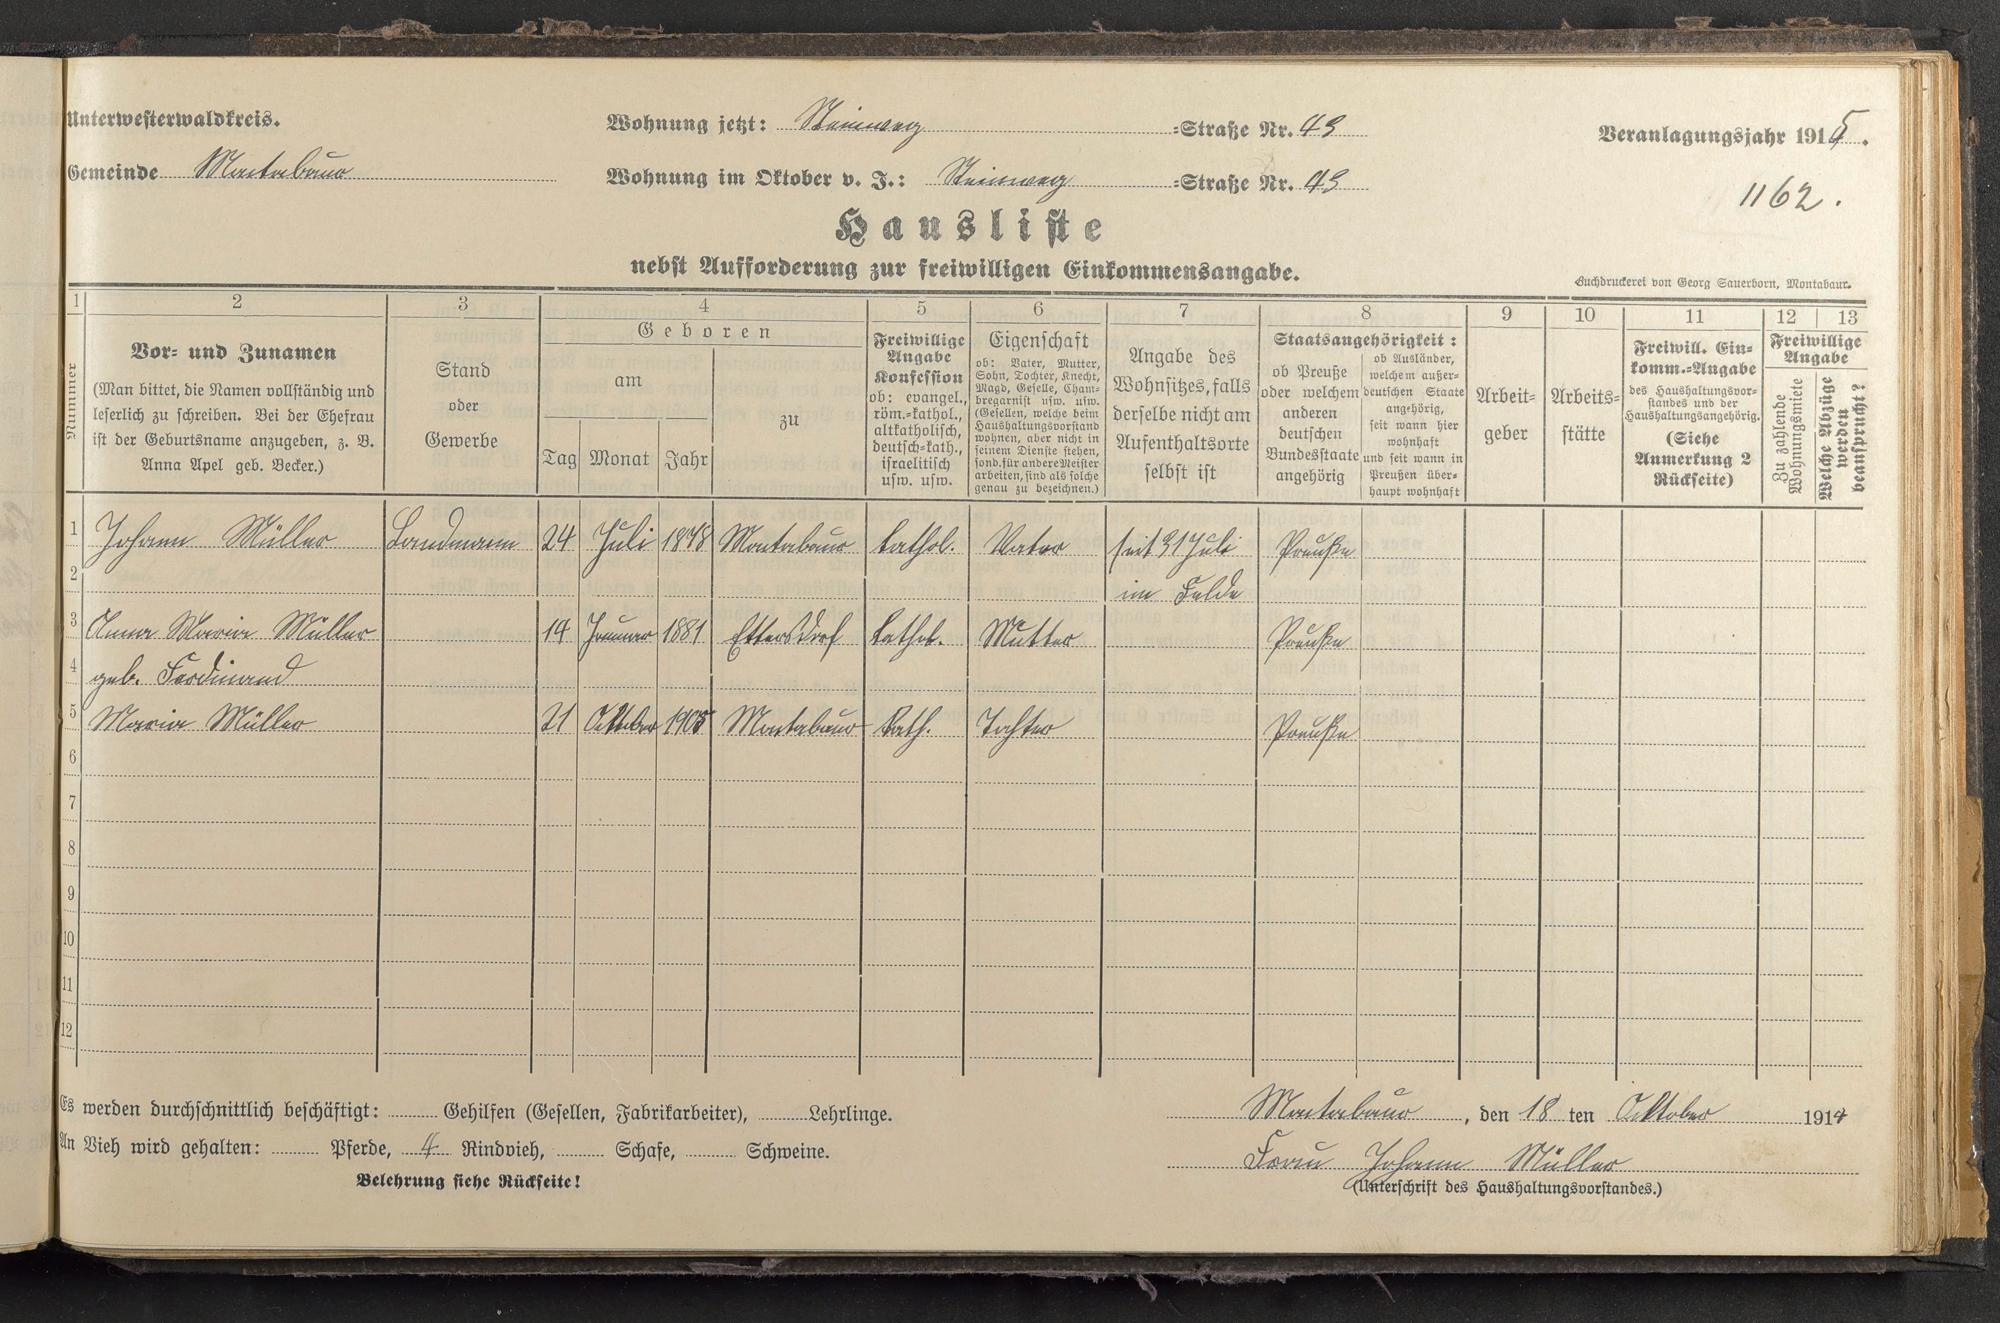 Unterwesterwaldkreis.
Gemeinde Montabaur
Wohnung jetzt: Steinweg =Straße Nr. 43
Wohnung im Oktober v. J.: Steinweg =Straße Nr. 43
Veranlagungsjahr 1915.
1162.
Hausliste
nebst Aufforderung zur freiwilligen Einkommensangabe.
Buchdruckerei von Georg Sauerborn, Montabaur.
1 2 3 4 5 6 7 8 9 10 11 12 13
Nummer
Vor- und Zunamen
(Man bittet, die Namen vollständig und
leserlich zu schreiben. Bei der Ehefrau
ist der Geburtsname anzugeben, z. B.
Anna Apel geb. Becker.)
Stand
oder
Gewerbe
Geboren
am
Tag Monat Jahr
zu
Freiwillige
Angabe
Konfession
ob: evangel.,
röm.=kathol.,
altkatholisch,
deutsch=kath.,
israelitisch
usw. usw.
Eigenschaft
ob: Vater, Mutter,
Sohn, Tochter, Knecht,
Magd, Geselle, Cham-
bregarnist usw. usw.
(Gesellen, welche beim
Haushaltungsvorstand
wohnen, aber nicht in
seinem Dienste stehen,
sond. für andere Meister
arbeiten, sind als solche
genau zu bezeichnen.)
Angabe des
Wohnsitzes, falls
derselbe nicht am
Aufenthaltsorte
selbst ist
Staatsangehörigkeit:
ob Preuße
oder welchem
anderen
deutschen
Bundesstaate
angehörig
ob Ausländer,
welchem außer-
deutschen Staate
angehörig,
seit wann hier
wohnhaft
und seit wann in
Preußen über-
haupt wohnhaft
Arbeit-
geber
Arbeits-
stätte
Freiwill. Ein-
komm.=Angabe
des Haushaltungsvor-
standes und der
Haushaltungsangehörig.
(Siehe
Anmerkung 2
Rückseite)
Freiwillige
Angabe
Zu zahlende
Wohnungsmiete
Welche Abzüge
werden
beansprucht?
1 Johann Müller Landmann 24 Juli 1878 Montabaur kathol. Vater seit 31 Juli Preuße
2 im Felde
3 Anna Maria Müller 14 Januar 1881 Ettersdorf kathol. Mutter Preuße
4 geb. Ferdinand
5 Maria Müller 21 Oktober 1905 Montabaur kath. Tochter Preuße
6
7
8
9
10
11
12
Es werden durchschnittlich beschäftigt: Gehilfen (Gesellen, Fabrikarbeiter), Lehrlinge.
An Vieh wird gehalten: Pferde, 4 Rindvieh, Schafe, Schweine.
Belehrung siehe Rückseite!
Montabaur, den 18 ten Oktober 1914
Frau Johann Müller
(Unterschrift des Haushaltungsvorstandes.)